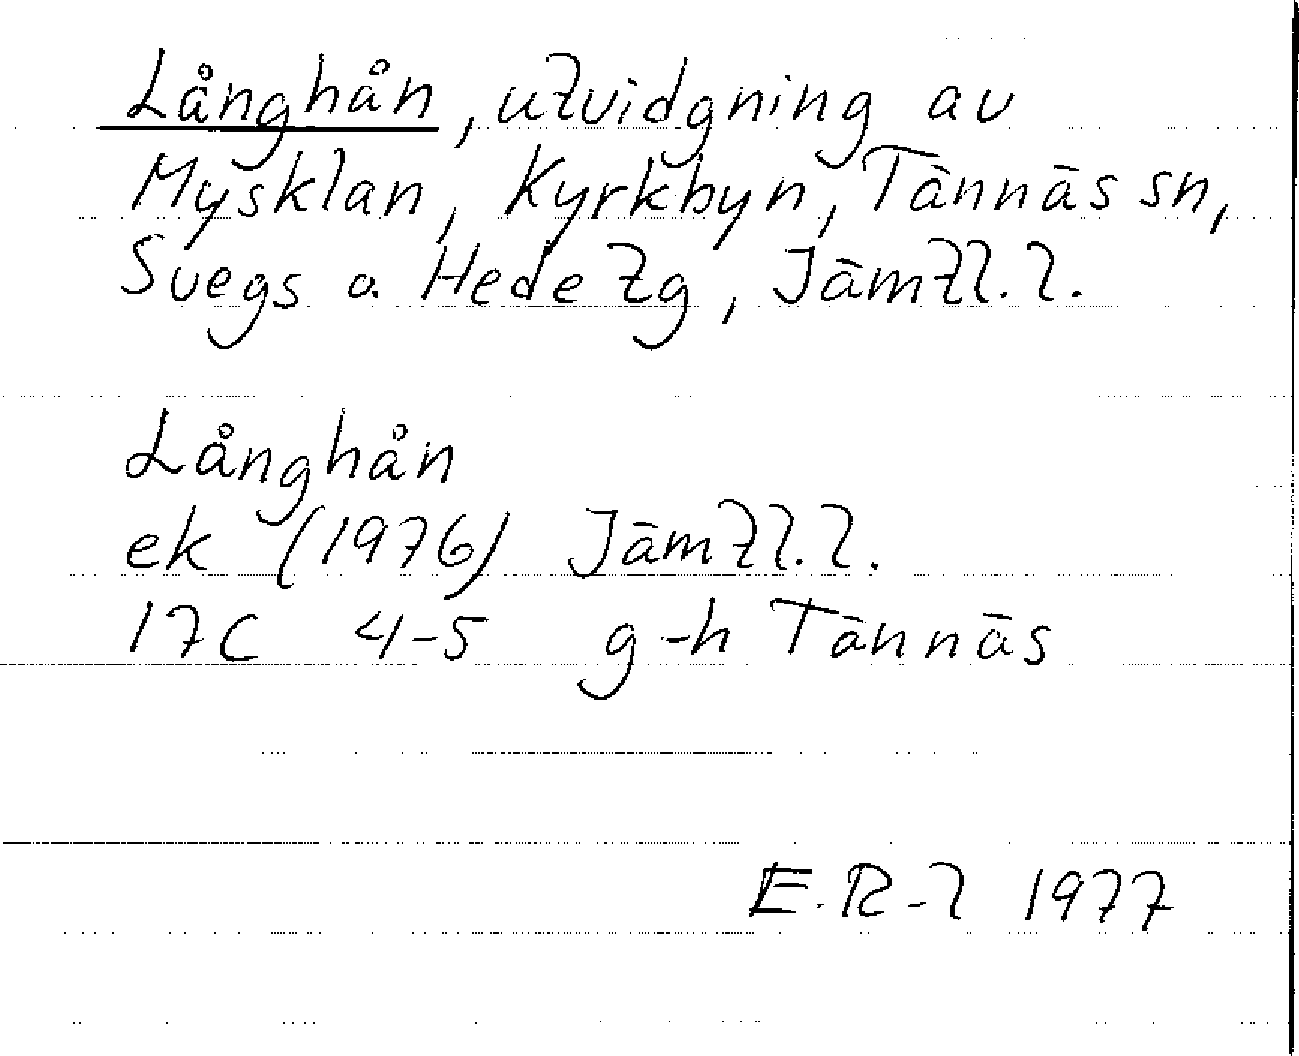 Långhån, utvidgning av
Mysklan, Kyrkbyn, Tännäs sn,
Svegs o. Hede tg, Jämtl. l.
Långhån
ek (1976) Jämtl. l.
17C 4-5 g-h Tännäs
E. R-l 1977